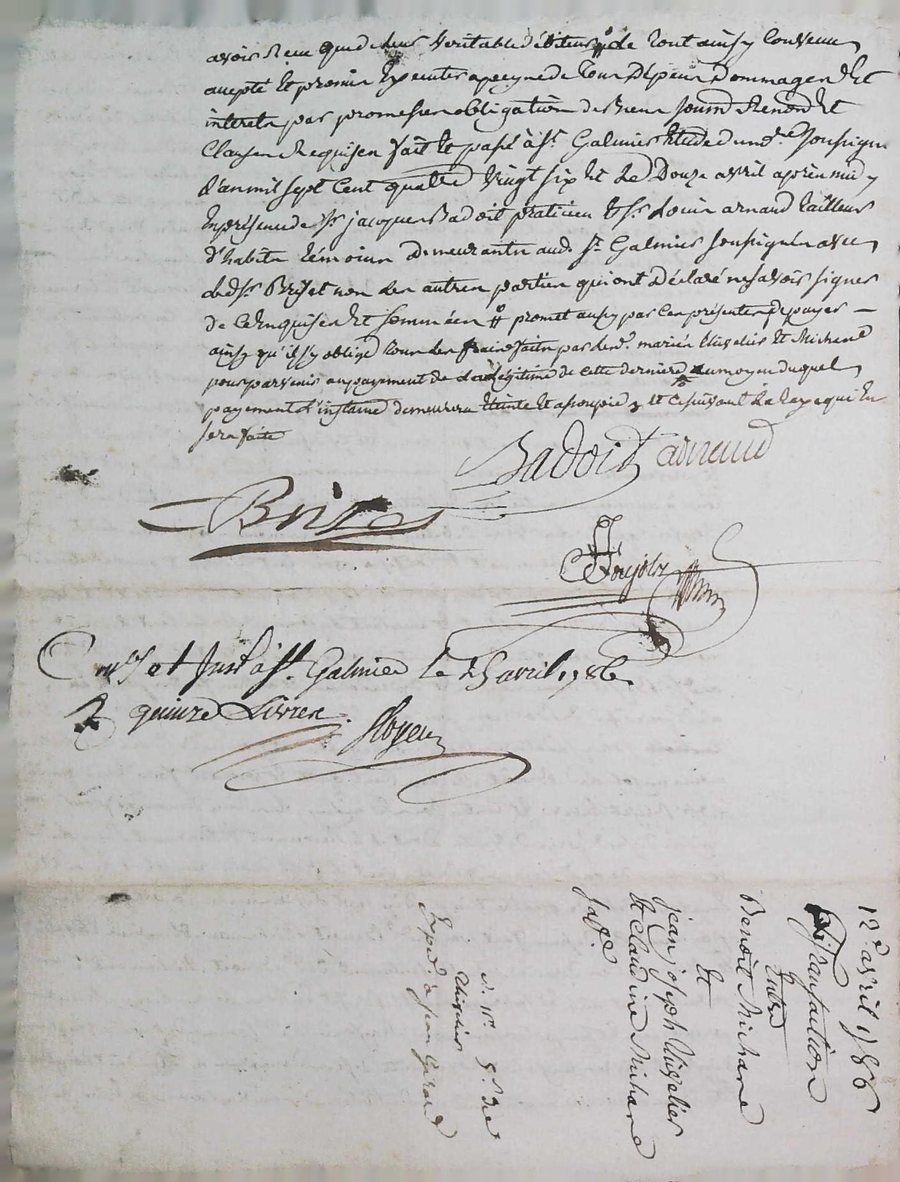 avoir Reçu que de leur Veritable débiteur, # de tout ainsy Convenu
accepté Et promis Executer a peyne de tous Dépens Dommages Et
interets par promesses obligation de Biens soumis Renond. Et
Clauses Requises fait Et passé à St. Galmier Etude du nore. soussigné
L'an mil sept Cent quattre Vingt six Et Le Douze avril après midy
En présence de Sr. jacques Badoit praticien Et Sr. Louis arnaud tailleur
d'habits temoins Demeurants aud. St. Galmier soussignés avec
led. Sr. Briset non les autres parties qui ont Déclaré ne savoir signer
de Ce Enquises Et sommées # promet aussy par Ces présentes de payer
ainsy qu'il s'y oblige tous les frais faits par les d. mariés Et Michard
pour parvenir au payement de La Légitime de cette derniere au moyen duquel
payement L'instance demeurera Eteinte Et assoupie Et Ce suivant La taxe qui En
sera faite
Badoit arnaud
Briset
Poujols
Conllé et Insé à St. Galmier le 25 avril 1786
R quinze Livres.
12e. avril 1786
Transaction
Entre
Benoît Michard
Et
jean joseph
Et Claudine Michard
sa fe.
Expé. à jean Girard